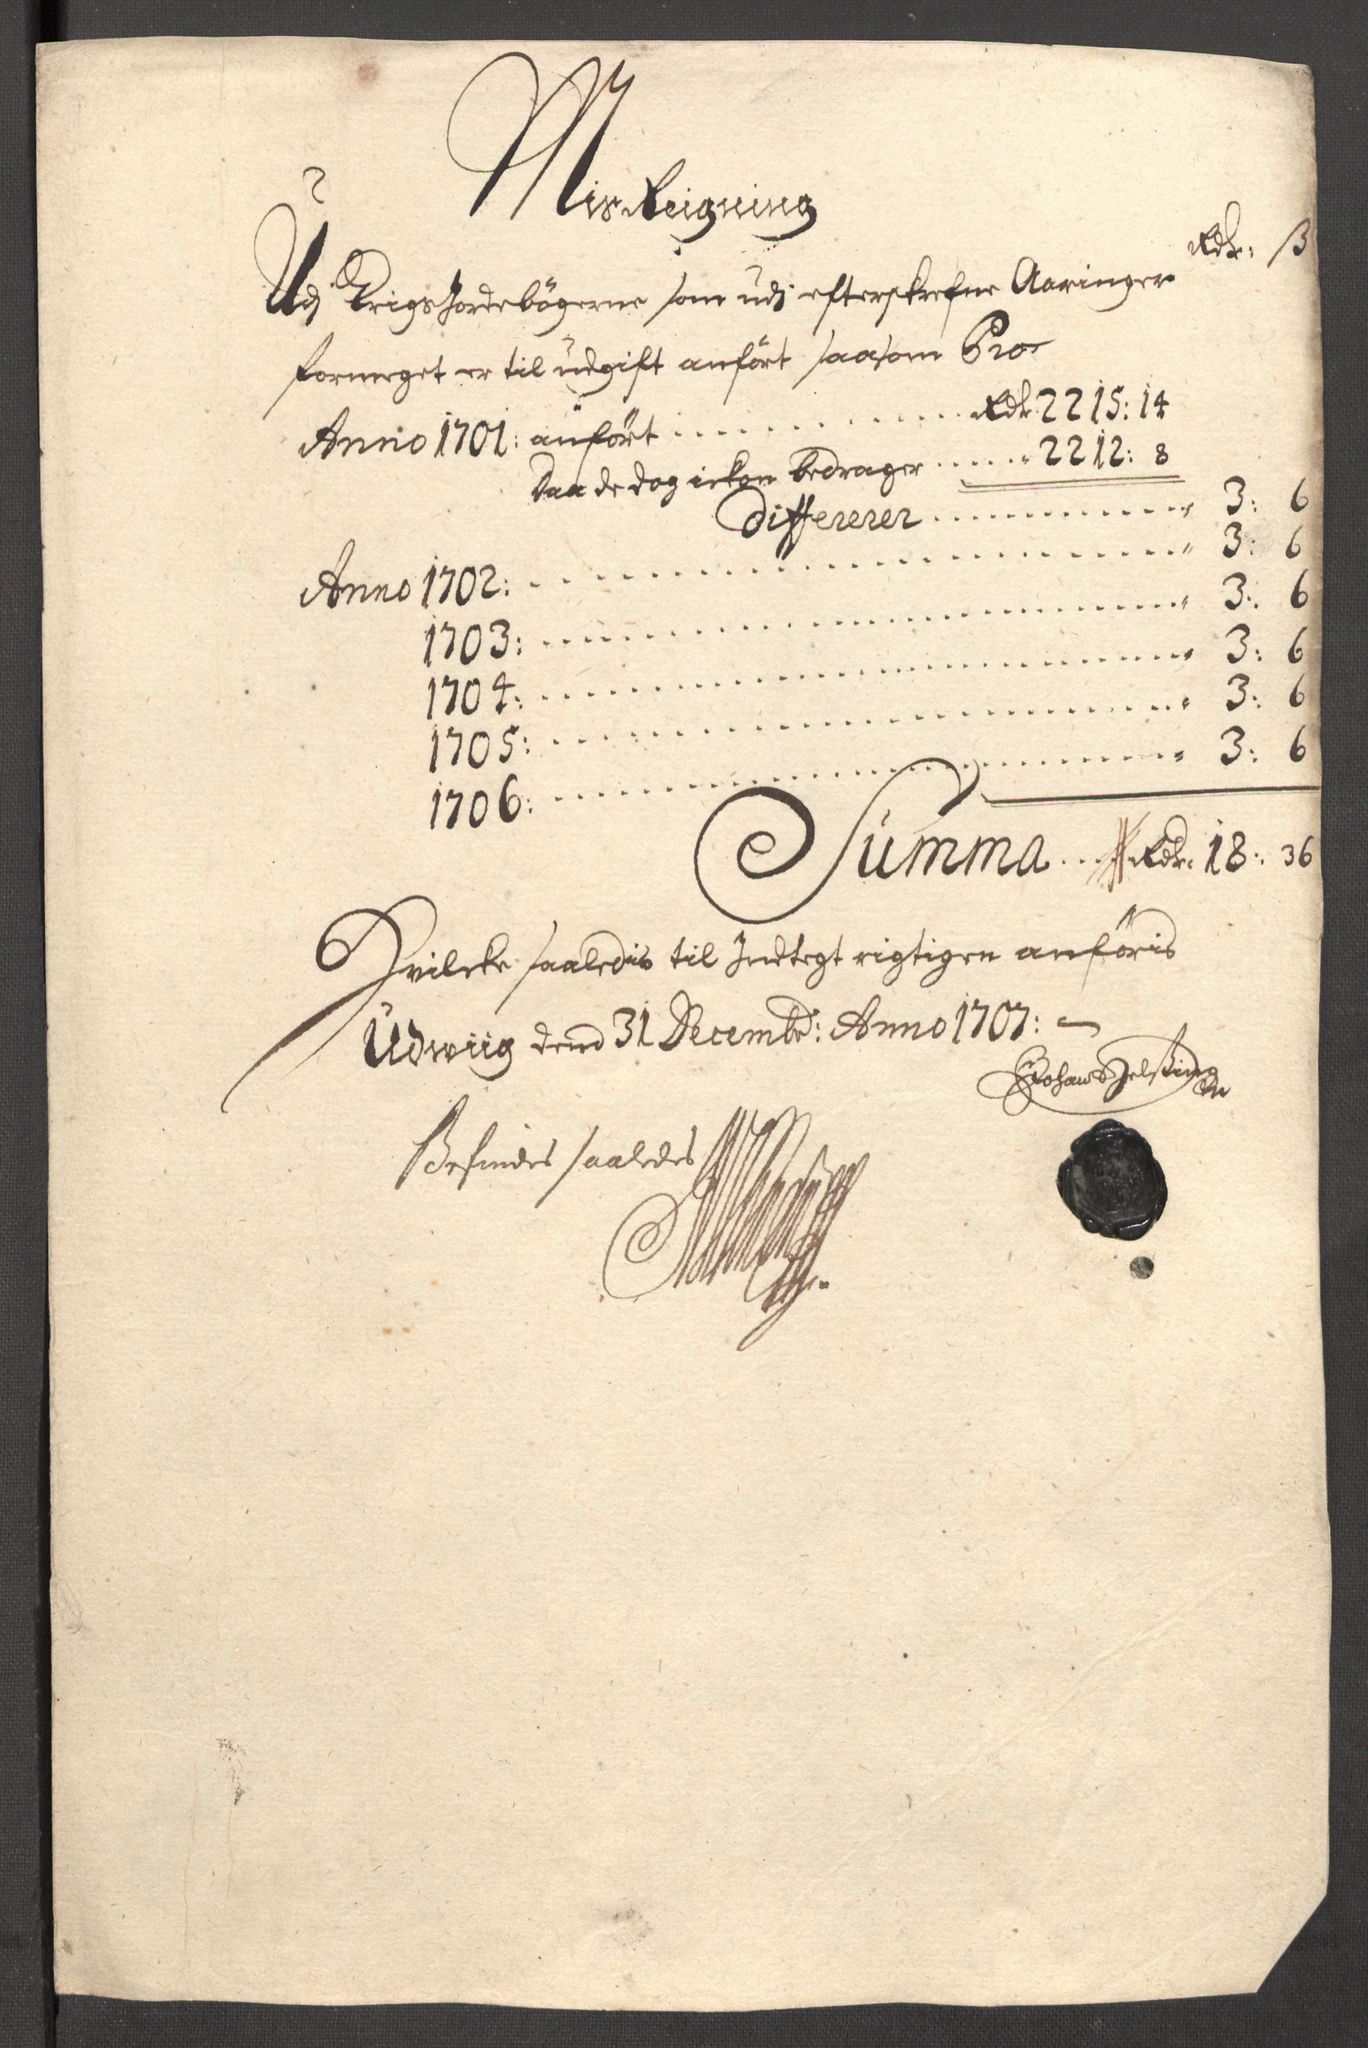 Misreigning
Rdr: ß
Udj Krigs Jordebögerne som udj efterskrefne Aaringer
formeget er til udgift anfört saasom Pro
Anno 1701: anfört . . . . . . . . . Rdr 2215: 14
Daa de dog icken bedrager . . . . . . 2212: 8
Differerer . . . . . . . . . . 3: 6
Anno 1702: . . . . . . . . . . 3: 6
1703: . . . . . . . . . . 3: 6
1704: . . . . . . . . . . 3: 6
1705: . . . . . . . . . . 3: 6
1706: . . . . . . . . . . 3: 6
Summa . . . Rdr: 18: 36
Hvilcke saaledis til Indtegt rigtigen anföris
Udwiig dend 31 Decembr: Anno 1707:
Befindes saaledes